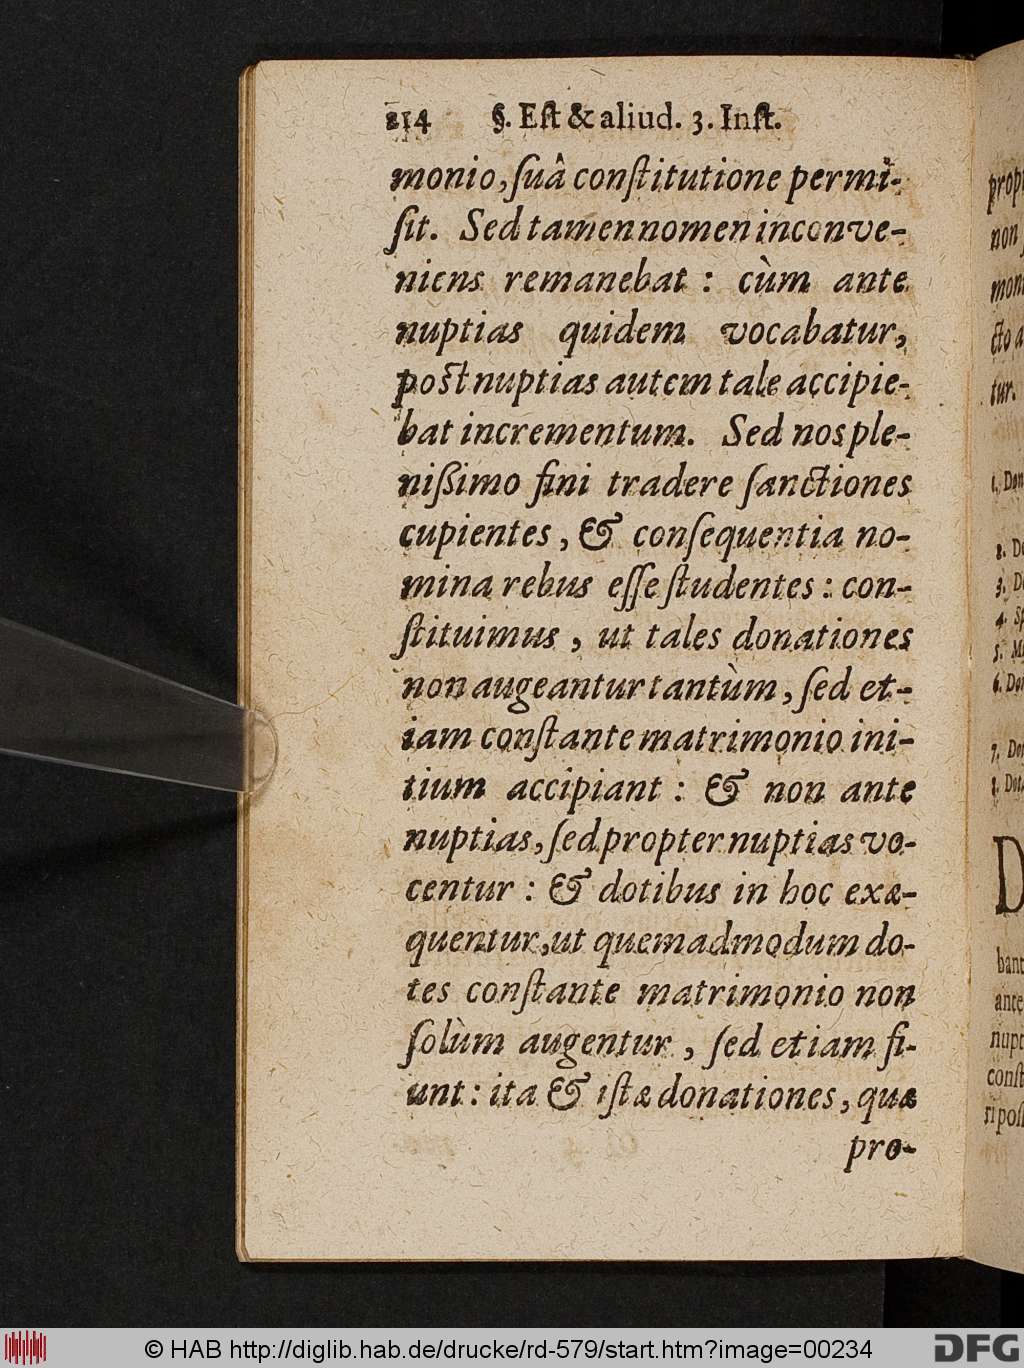 214 §. Eſt & aliud. 3. Inſt.
monio, ſuâ conſtitutione permi-
ſit. Sed tamen nomen inconve-
niens remanebat : cùm ante
nuptias quidem vocabatur,
poſt nuptias autem tale accipie-
bat incrementum. Sed nos ple-
nißimo fini tradere ſanctiones
cupientes, & conſequentia no-
mina rebus eſſe ſtudentes : con-
ſtituimus, ut tales donationes
non augeantur tantùm, ſed et-
iam conſtante matrimonio ini-
tium accipiant : & non ante
nuptias, ſed propter nuptias vo-
centur : & dotibus in hoc exæ-
quentur, ut quemadmodum do-
tes conſtante matrimonio non
ſolùm augentur, ſed etiam fi-
unt : ita & iſtæ donationes, quæ
pro-
non
tur.
1. Don
3. D
7. Do
8. Dot
D
bant
ante
nupt
conſt
© HAB http://diglib.hab.de/drucke/rd-579/start.htm?image=00234
DFG